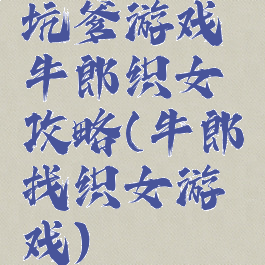 坑爹游戏
牛郎织女
攻略(牛郎
找织女游
戏)